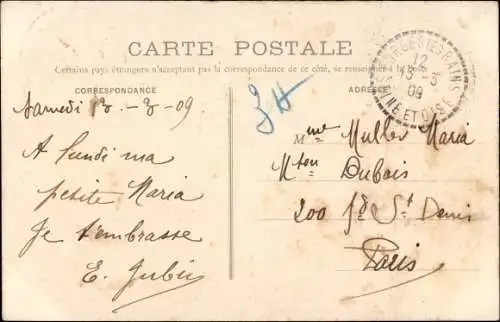 CARTE POSTALE
Certains pays étrangers n'acceptant pas la correspondance de ce côté, se renseigner à la Poste
CORRESPONDANCE
ADRESSE
12
3-3
09
SEINE ET OISE
Samedi 13-3-09.
A lundi ma
petite Maria
Je t'embrasse
E.
Mme Muller Maria
Mton Dubois
200 fg St Denis
Paris